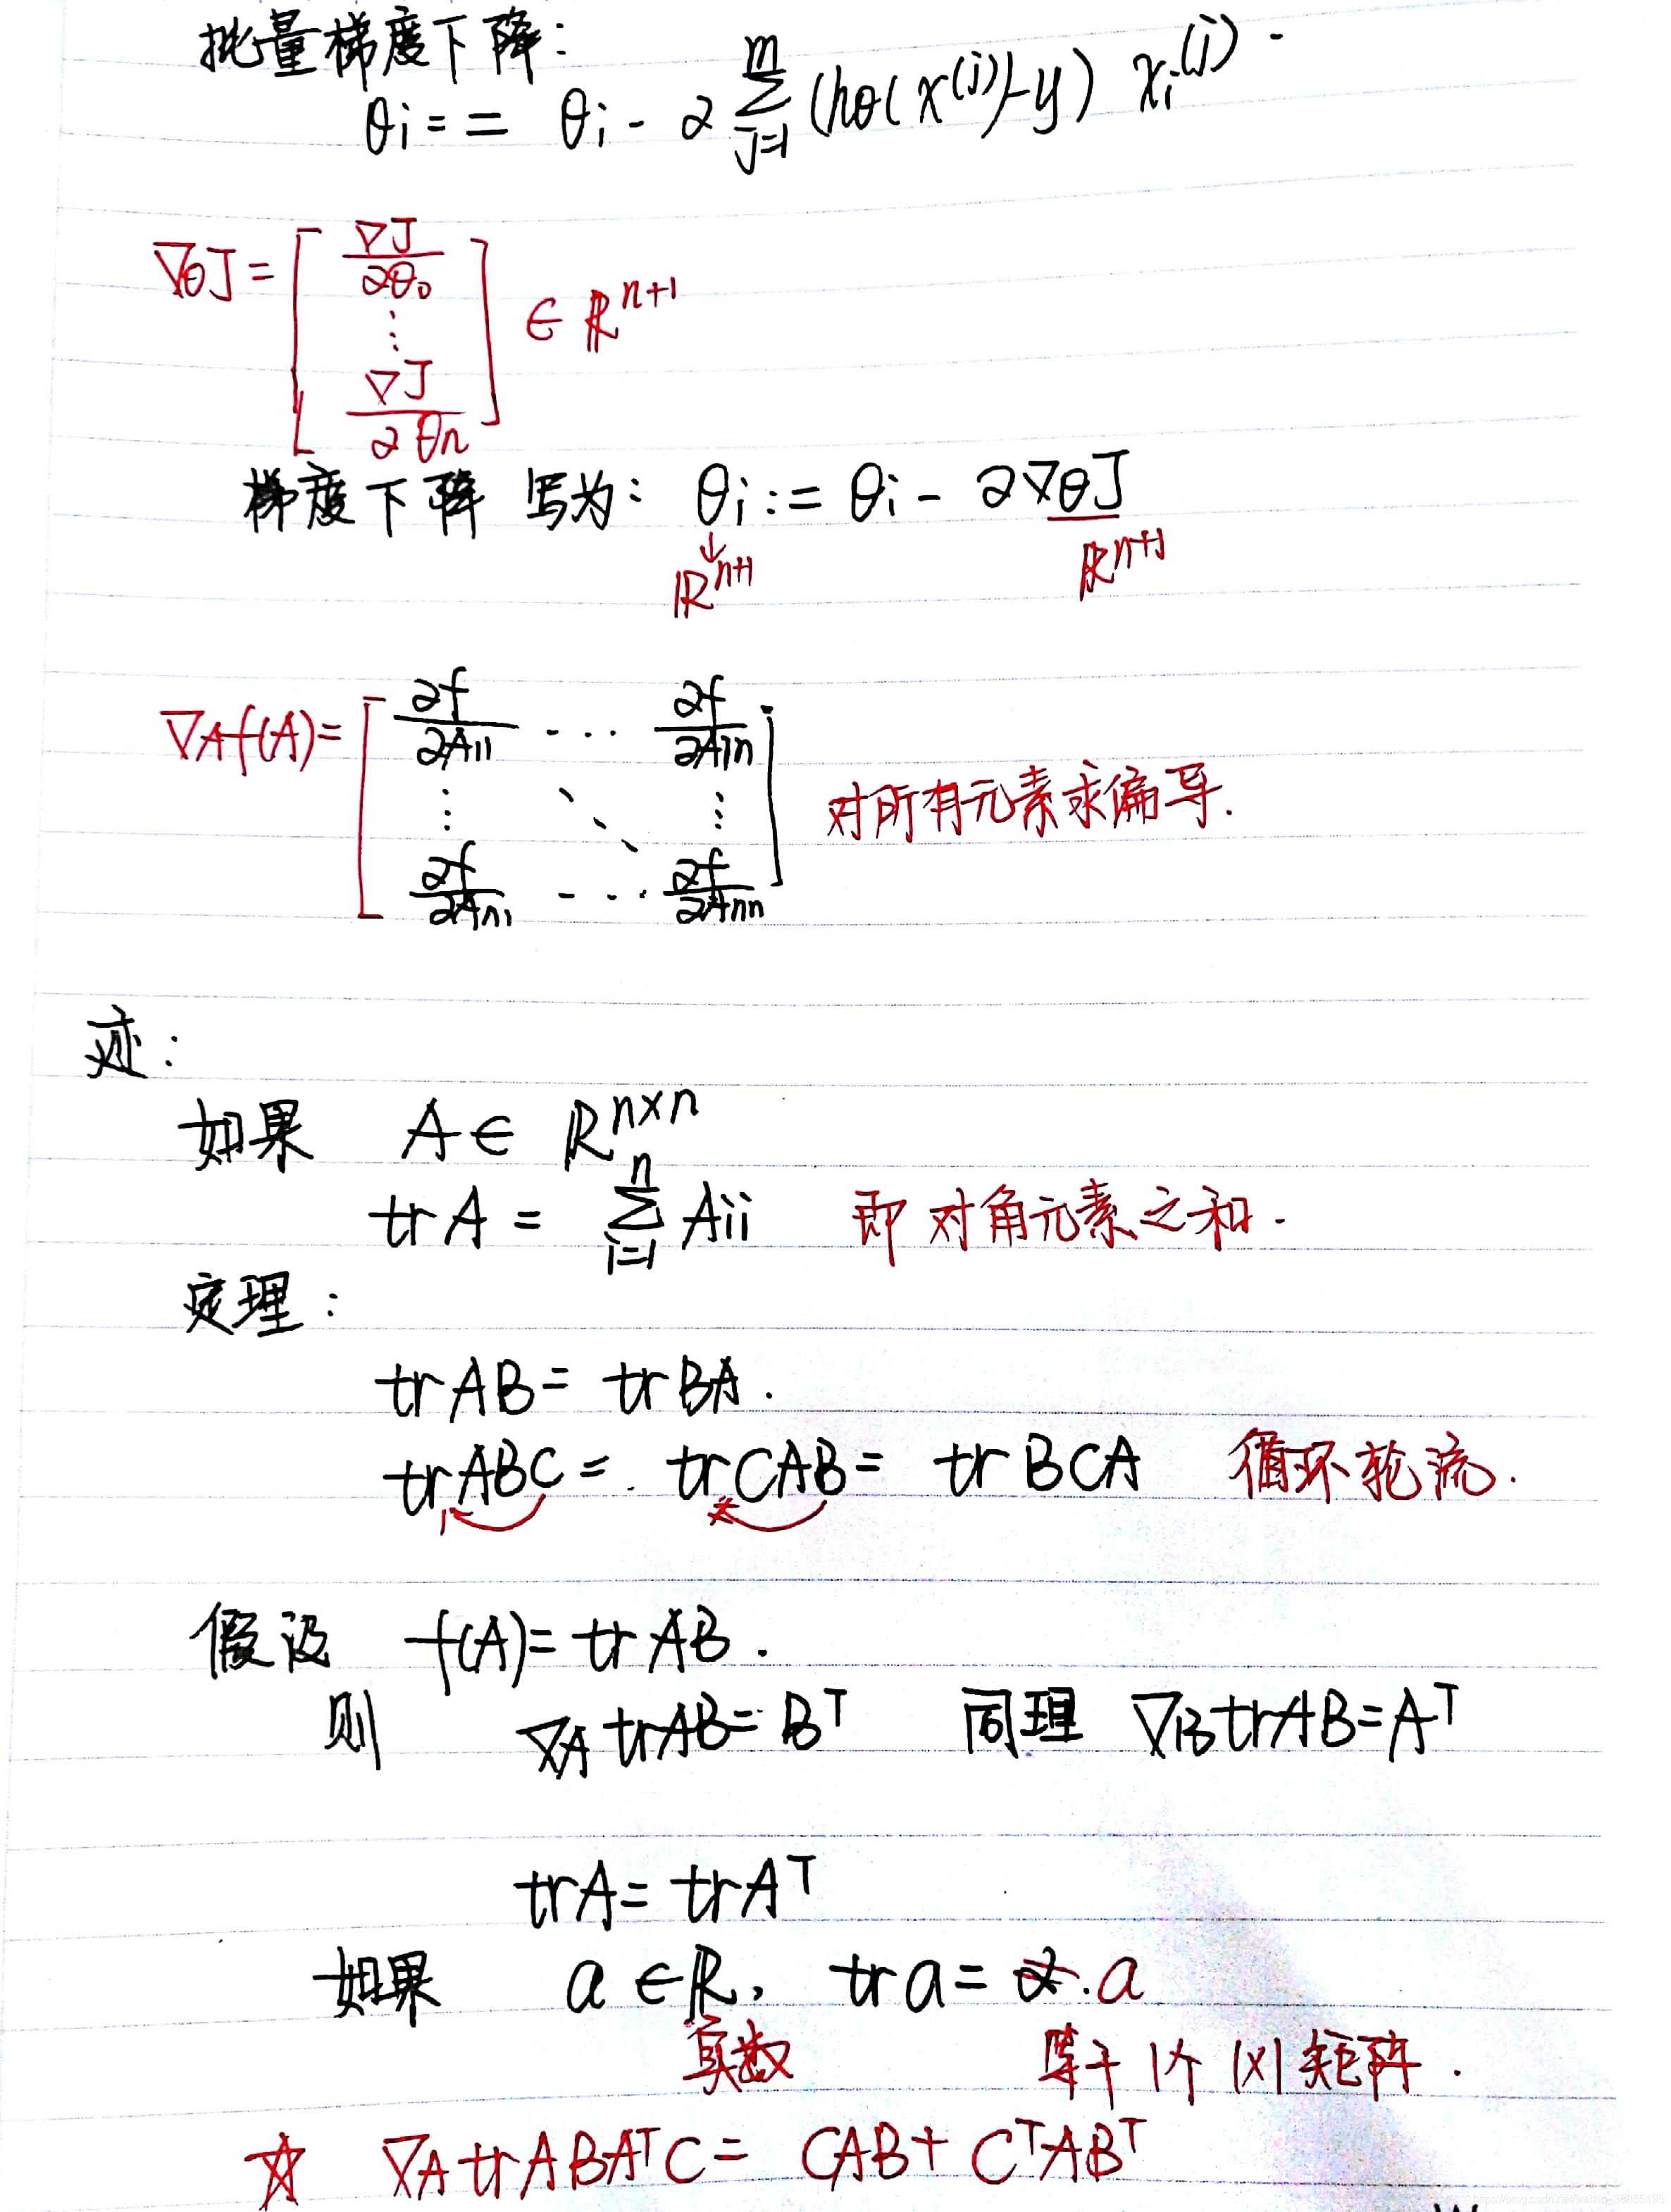 批量梯度下降:
θi := θi - α ∑_{j=1}^{m} (hθ(x^(j))-y) xi^(j).
∇θJ = [ ∇J/∂θ0 ⋮ ∇J/∂θn ] ∈ ℝ^{n+1}
梯度下降 写为: θi := θi - α∇θJ
ℝ^{n+1} ℝ^{n+1}
∇Af(A) = [ ∂f/∂A11 ... ∂f/∂A1n ⋮ ⋱ ⋮ ∂f/∂An1 ... ∂f/∂Ann ] 对所有元素求偏导.
迹:
如果 A ∈ ℝ^{n×n}
trA = ∑_{i=1}^{n} Aii 即对角元素之和.
定理:
trAB = trBA.
trABC = trCAB = trBCA 循环轮流.
假设 f(A) = trAB.
则 ∇A trAB = B^T 同理 ∇B trAB = A^T
trA = trA^T
如果 a ∈ ℝ, tr a = a
实数 等于1个 1×1 矩阵.
☆ ∇A trABA^TC = CAB + C^TAB^T